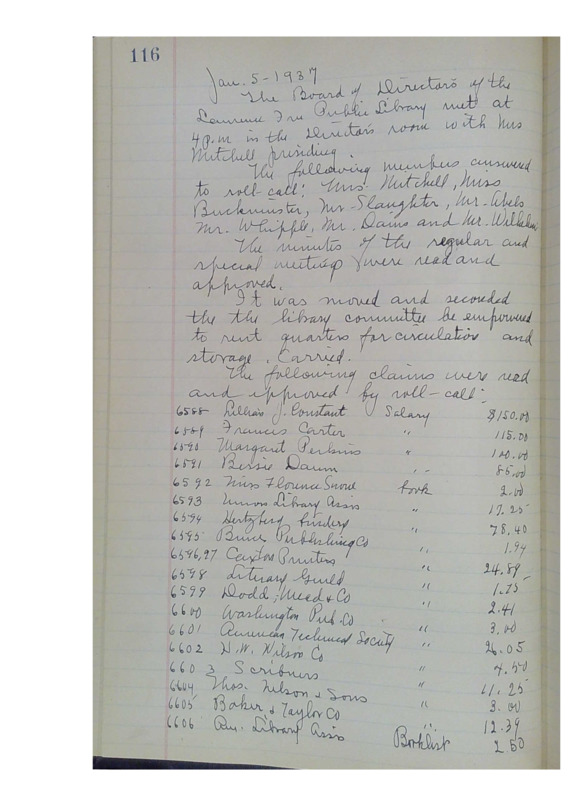 116
Jan. 5-1937
The Board of Directors of the
Lawrence Free Public Library met at
4 p.m in the Directors room with Mrs
Mitchell presiding.
The following members answered
to roll-call: Mrs. Mitchell, Miss
Buckminster, Mr. Slaughter, Mr. Abels
Mr. Whipple, Mr. Dains and Mr.
The minutes of the regular and
special meeting were read and
approved.
It was moved and seconded
the the library committee be empowered
to rent quarters for circulation and
storage. Carried.
The following claims were read
and approved by roll-call:
6588 Lillian J. Constant Salary $150.00
6589 Francis Carter " 115.00
6590 Margaret Perkins " 100.00
6591 Bessie Daum " 85.00
6592 Miss Florence Snow book 2.00
6593 Union Library Assn " 17.25
6594 Hertzberg Bindery " 78.40
6595 Bruce Publishing Co " 1.94
6596,97 Caxton Printers " 24.89
6598 Literary Guild " 1.75
6599 Dodd, Mead & Co " 2.41
6600 Washington Pub. Co " 3.00
6601 American Technical Society " 26.05
6602 H. W. Wilson Co 4.50
6603 Scribners " 11.25
6604 Thos. Nelson & Sons " 3.00
6605 Baker & Taylor Co " 12.39
6606 Am. Library Assn Booklist 2.50